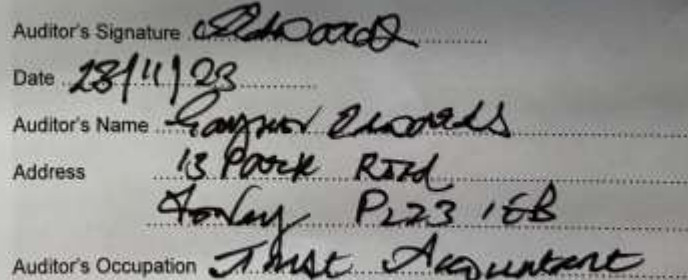 Auditor's Signature Edwards
Date 28/11/23
Auditor's Name Gaynor Edwards
Address 13 Park Road
Fowey PL23 1EB
Auditor's Occupation Trust Accountant